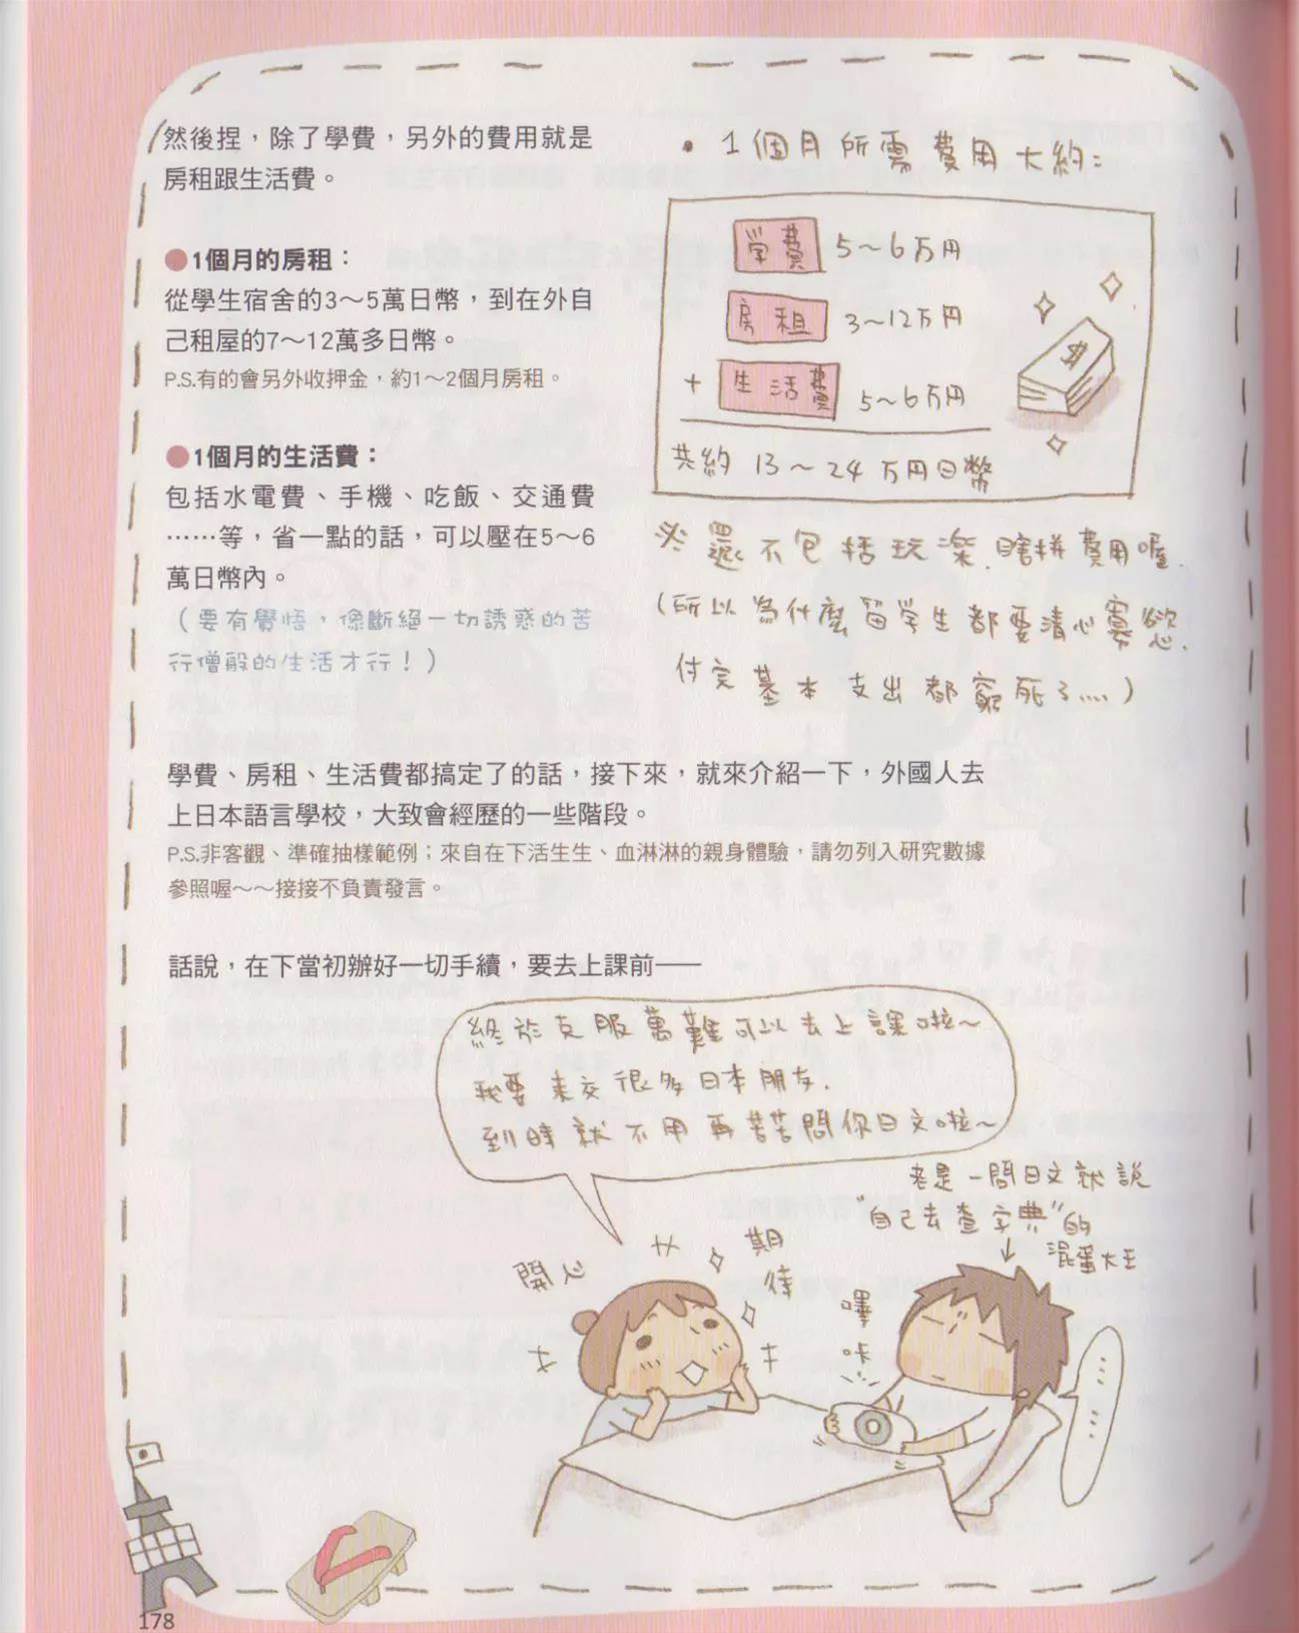 然後捏，除了學費，另外的費用就是
房租跟生活費。
●1個月的房租：
從學生宿舍的3～5萬日幣，到在外自
己租屋的7～12萬多日幣。
P.S.有的會另外收押金，約1～2個月房租。
●1個月的生活費：
包括水電費、手機、吃飯、交通費
……等，省一點的話，可以壓在5～6
萬日幣內。
（要有覺悟，像斷絕一切誘惑的苦
行僧般的生活才行！）
• 1個月所需費用大約：
学費 5～6万円
房租 3～12万円
+ 生活費 5～6万円
共約 13～24万円日幣
※還不包括玩樂、瞎拼費用喔.
(所以為什麼留学生都要清心寡慾.
付完基本支出都窮死了……)
學費、房租、生活費都搞定了的話，接下來，就來介紹一下，外國人去
上日本語言學校，大致會經歷的一些階段。
P.S.非客觀、準確抽樣範例；來自在下活生生、血淋淋的親身體驗，請勿列入研究數據
參照喔～～接接不負責發言。
話說，在下當初辦好一切手續，要去上課前——
終於克服萬難可以去上課啦～
我要來交很多日本朋友.
到時就不用再苦苦問你日文啦～
老是一問日文就說
"自己去查字典"的
混蛋大王
開心
期待
嗶咔
……
178